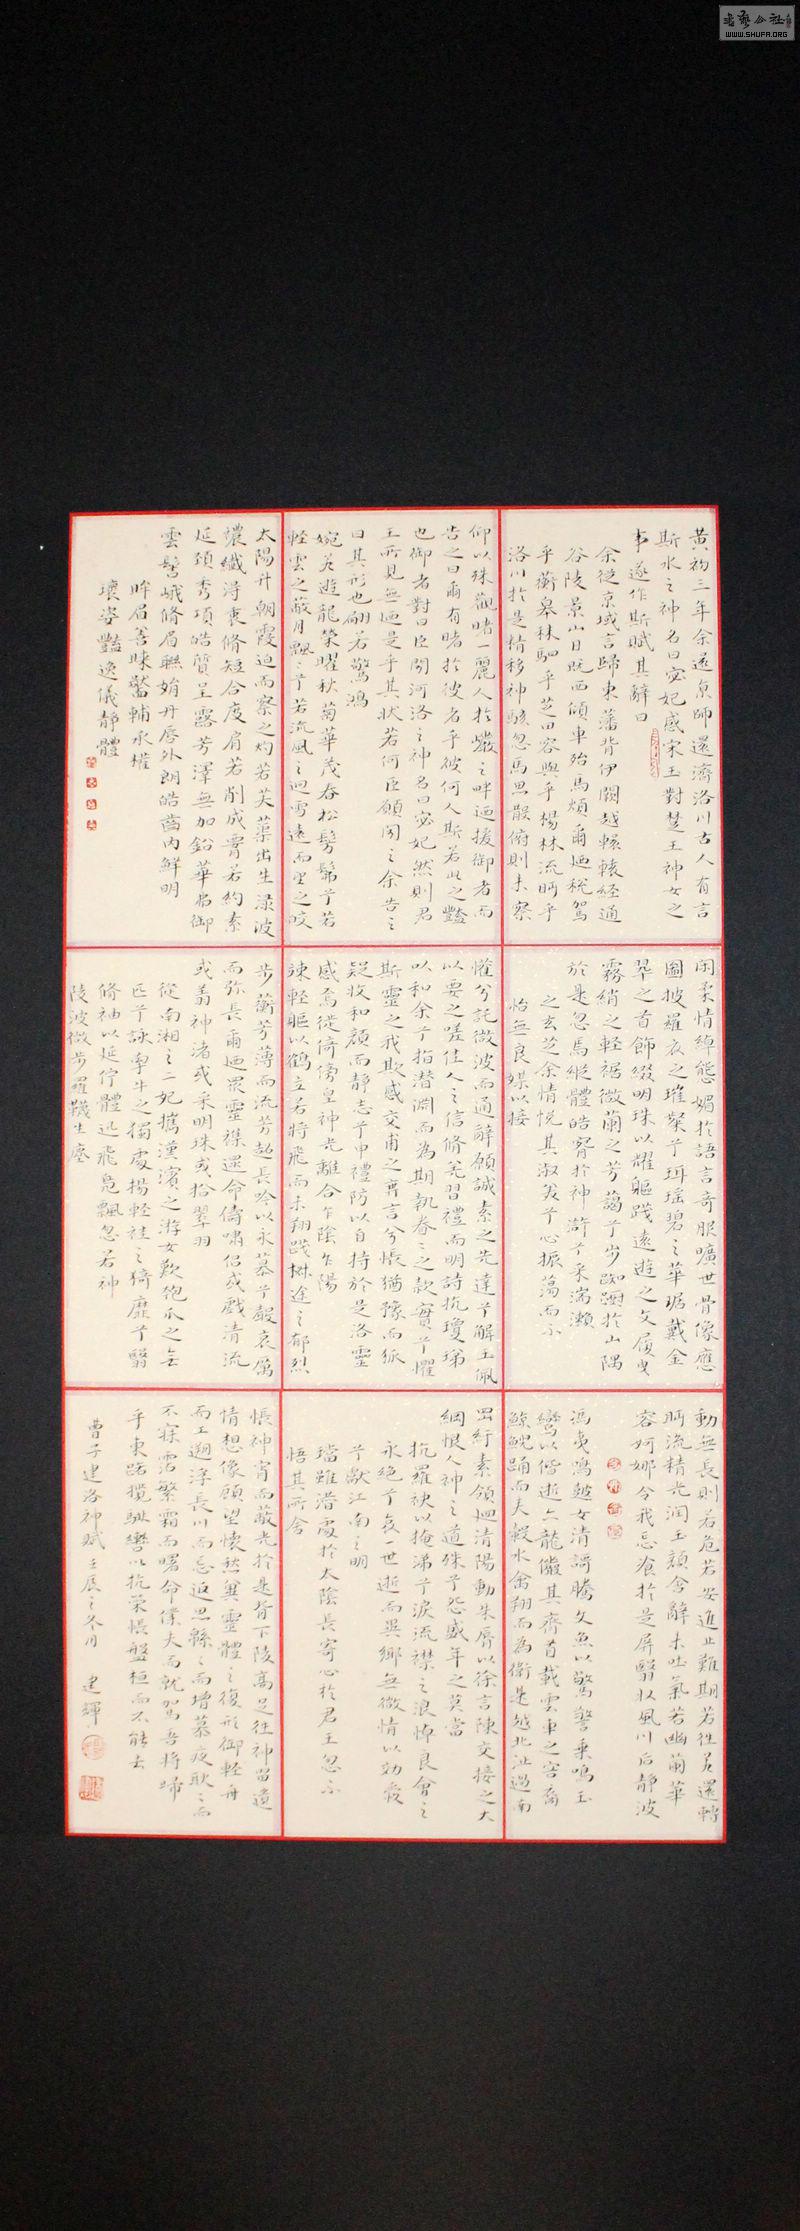 黄初三年余還京師還濟洛川古人有言
斯水之神名曰宓妃感宋玉對楚王神女之
事遂作斯賦其辭曰
余從京域言歸東藩背伊闕越轘轅經通
谷陵景山日既西傾車殆馬煩爾迺稅駕
乎蘅皋秣駟乎芝田容與乎楊林流眄乎
洛川於是精移神駭忽焉思散俯則未察
仰以殊觀睹一麗人於巖之畔迺援御者而
告之曰爾有睹於彼者乎彼何人斯若此之豔
也御者對曰臣聞河洛之神名曰宓妃然則君
王所見無迺是乎其狀若何臣願聞之余告之
曰其形也翩若驚鴻
婉若遊龍榮曜秋菊華茂春松髣髴兮若
輕雲之蔽月飄飄兮若流風之迴雪遠而望之皎
太陽升朝霞迫而察之灼若芙蕖出生淥波
禯纖得衷脩短合度肩若削成腰若約素
延頸秀項皓質呈露芳澤無加鉛華弗御
雲髻峨脩眉聯娟丹脣外朗皓齒內鮮明
眸眉善睞靨輔承權
瓌姿豔逸儀靜體
閑柔情綽態媚於語言奇服曠世骨像應
圖披羅衣之璀粲兮珥瑶碧之華琚戴金
翠之首飾綴明珠以耀軀踐遠遊之文履曳
霧綃之輕裾微蘭之芳藹兮步踟躕於山隅
於是忽焉縱體皓腕於神滸兮采湍瀨
之玄芝余情悅其淑美兮心振蕩而不
怡無良媒以接
懽兮託微波而通辭願誠素之先達兮解玉佩
以要之嗟佳人之信脩羌習禮而明詩抗瓊珶
以和余兮指潛淵而為期執眷眷之款實兮懼
斯靈之我欺感交甫之棄言兮悵猶豫而狐
疑收和顏而靜志兮申禮防以自持於是洛靈
感焉徙倚傍皇神光離合乍陰乍陽
竦輕軀以鶴立若將飛而未翔踐椒途之郁烈
步蘅芳薄而流芳超長吟以永慕兮聲哀厲
而弥長爾迺眾靈襍遝命儔嘯侶或戲清流
或翥神渚或采明珠或拾翠羽
從南湘之二妃攜漢濱之游女歎匏瓜之無
匹兮詠牽牛之獨處揚輕袿之猗靡兮翳
脩袖以延佇體迅飛鳧飄忽若神
陵波微步羅韈生塵
動無長則若危若安進止難期若往若還轉
眄流精光潤玉顏含辭未吐氣若幽蘭華
容婀娜令我忘飡於是屏翳收風川后靜波
馮夷鳴鼓女清謌騰文魚以驚警乘鳴玉
鸞以偕逝六龍儼其齊首載雲車之容裔
鯨鯢踊而夾轂水禽翔而為衛是越北沚過南
岡紆素領迴清陽動朱脣以徐言陳交接之大
綱恨人神之道殊兮怨盛年之莫當
抗羅袂以掩涕兮淚流襟之浪悼良會之
永絕兮哀一世逝而異鄉無微情以効愛
兮獻江南之明
璫雖潛處於太陰長寄心於君王忽不
悟其所舍
悵神宵而蔽光於是背下陵高足往神留遺
情想像顧望懷愁冀靈體之復形御輕舟
而上遡浮長川而忘返思緜緜而增慕夜耿耿而
不寐霑繁霜而曙命僕夫而就駕吾將歸
乎東路攬騑轡以抗策悵盤桓而不能去
曹子建洛神賦壬辰之冬月 建輝
WWW.SHUFA.ORG